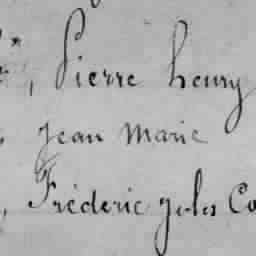 , Pierre henry
Jean Marie
, Fréderic Jules Co